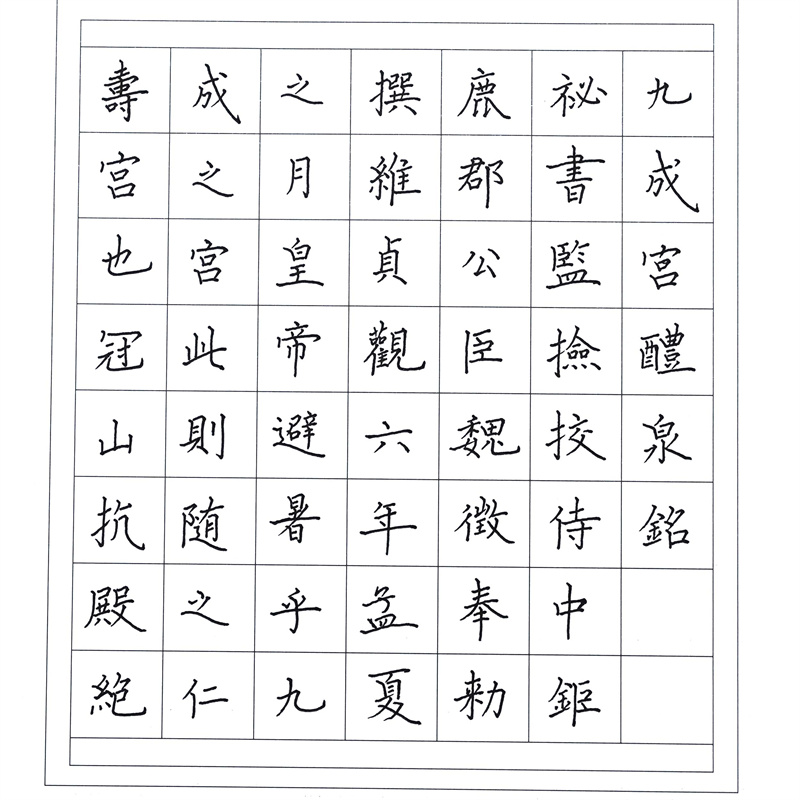 九成宮醴泉銘
祕書監撿挍侍中鉅
鹿郡公臣魏徵奉勑
撰維貞觀六年孟夏
之月皇帝避暑乎九
成之宮此則随之仁
壽宮也冠山抗殿絶